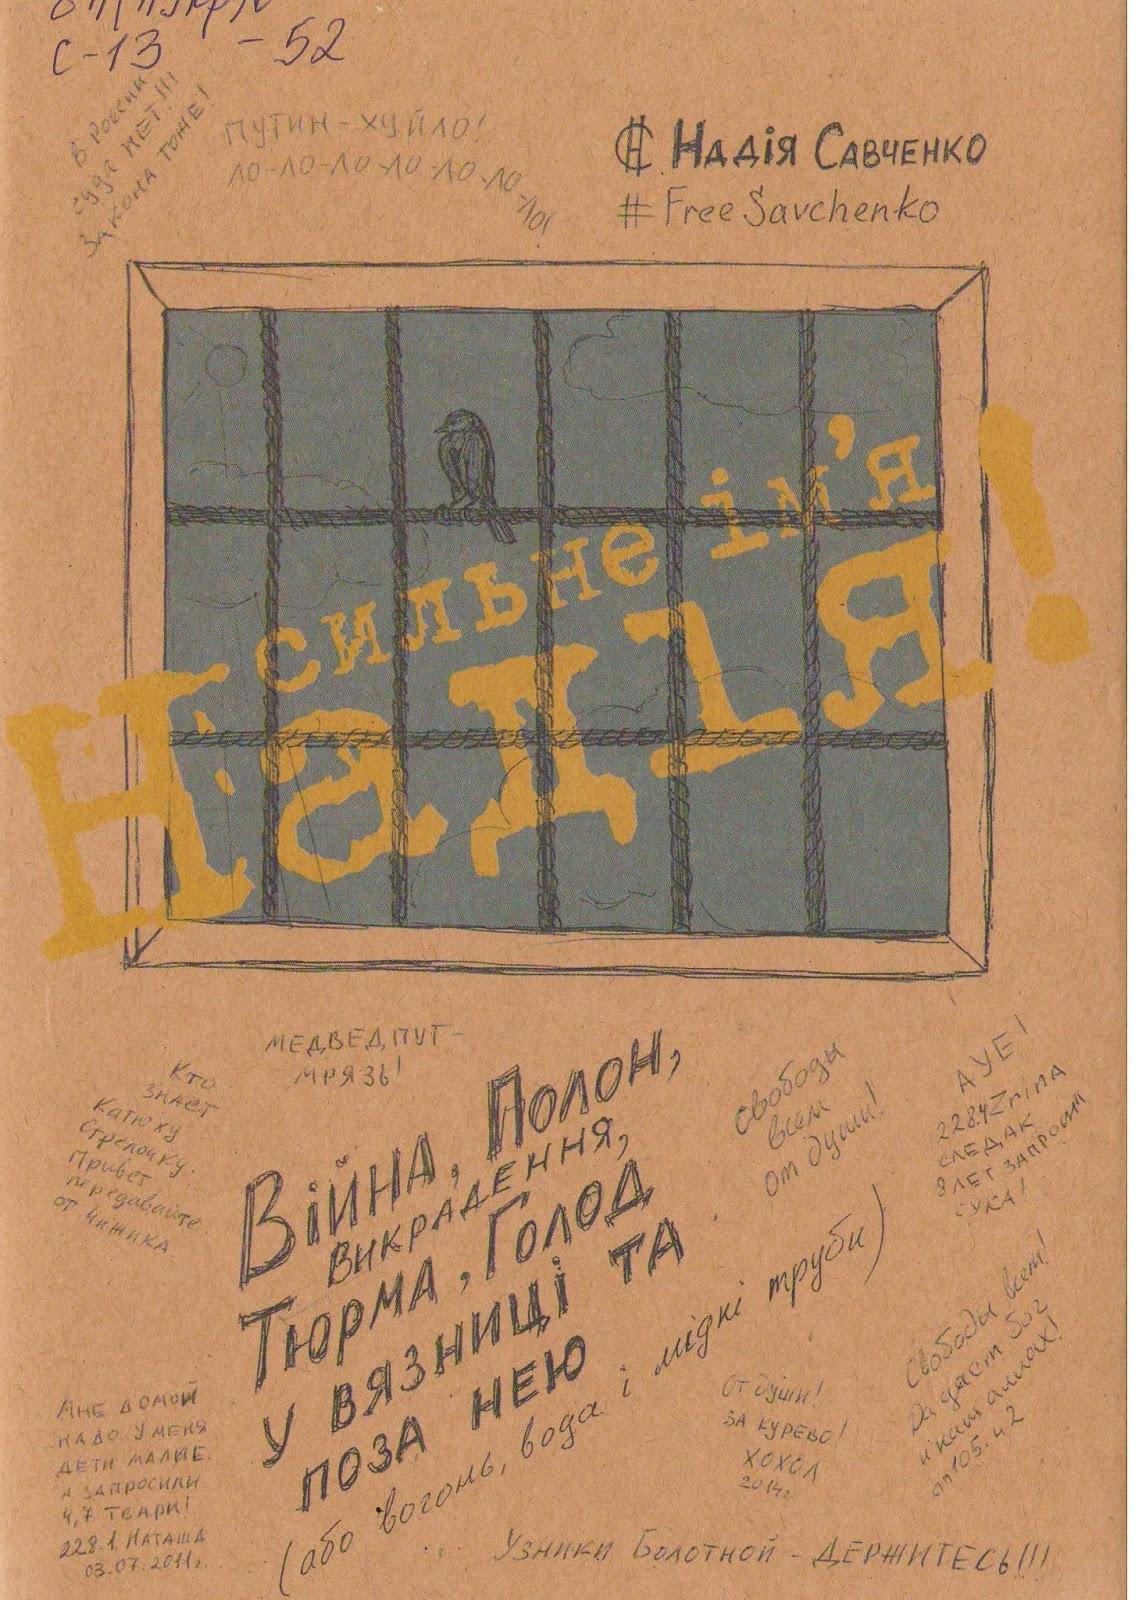 С-13 -52
В России
суда НЕТ!!!
Закона тоже!
ПУТИН-ХУЙЛО!
ЛО-ЛО-ЛО-ЛО-ЛО-ЛО-ЛО!
Надія Савченко
#FreeSavchenko
сильне ім'я
Надія!
МЕДВЕДПУТ-
МРЯЗЬ!
Кто
знает
Катюху
Стрелочку.
Привет
передавайте
от Чижика.
Війна, Полон,
викрадення,
Тюрма, Голод
у вязниці та
поза нею
(або вогонь, вода і мідні труби)
Свободы
всем
от души!
АУЕ!
228.4 Zrina
СЛЕДАК
8 ЛЕТ ЗАПРОСИЛ
СУКА!
Свободы всем!
Да даст бог
и наш аллах!
ап105.42
Мне домой
надо. У меня
дети малые.
А запросили
4,7 Твари!
228.1. Наташа
03.07.2011г.
От души!
ЗА КУРЕВО!
ХОХОЛ
2014г.
Узники Болотной - ДЕРЖИТЕСЬ!!!